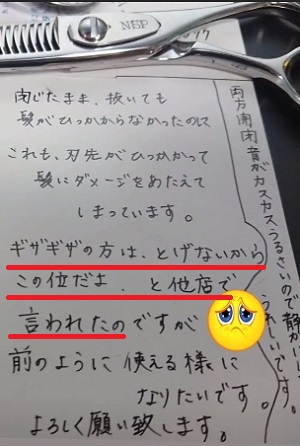 NSP
閉じたまま、抜いても
髪がひっかからなかったのに
これも、刃先がひっかかって
髪にダメージをあたえて
しまっています。
ギザギザの方は、とげないから
この位だよ、と他店で
言われたのですが
前のように使える様に
なりたいです。
よろしく願い致します。
両方開閉音がカスカスうるさいので静か
うれしいです。